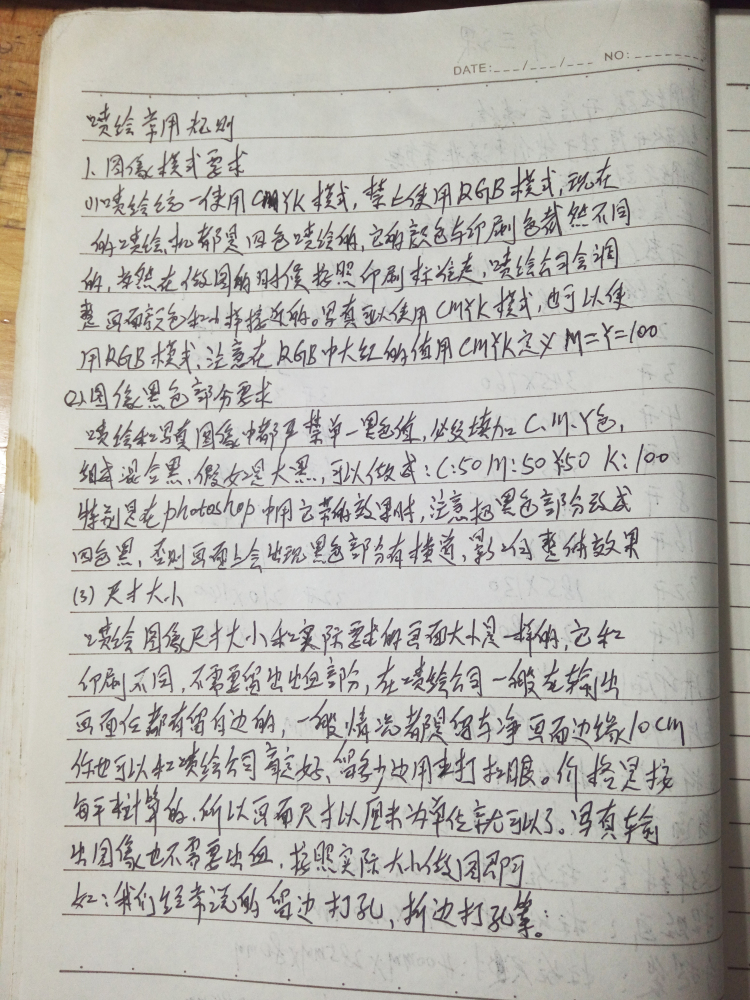 DATE:___/___/___ NO:________
喷绘常用规则
1、图像模式要求
(1)喷绘统一使用CMYK模式,禁止使用RGB模式,现在
的喷绘机都是四色喷绘的,它的颜色与印刷色截然不同
的,当然在做图的时候按照印刷标准走,喷绘公司会调
整画面颜色和小样接近的。写真可以使用CMYK模式,也可以使
用RGB模式,注意在RGB中大红的值用CMYK定义M=Y=100
(2)、图像黑色部分要求
喷绘和写真图像中都严禁单一黑色值,必须填加C、M、Y色,
组成混合黑,假如是大黑,可以做成:C:50 M:50 Y50 K:100
特别是在photoshop中用它带的效果时,注意把黑色部分改成
四色黑,否则画面上会出现黑色部分有横道,影响整体效果
(3)尺寸大小
喷绘图像尺寸大小和实际要求的画面大小是一样的,它和
印刷不同,不需要留出出血部分,在喷绘公司一般在输出
画面任都有留白边的,一般情况都是留车净画面边缘10CM
你也可以和喷绘公司商定好,留多少边用来打扣眼。价格是按
每平米计算的,所以画面尺寸以厘米为单位就可以了。写真输
出图像也不需要出血,按照实际大小做图即可
如:我们经常说的留边打孔,折边打孔等。